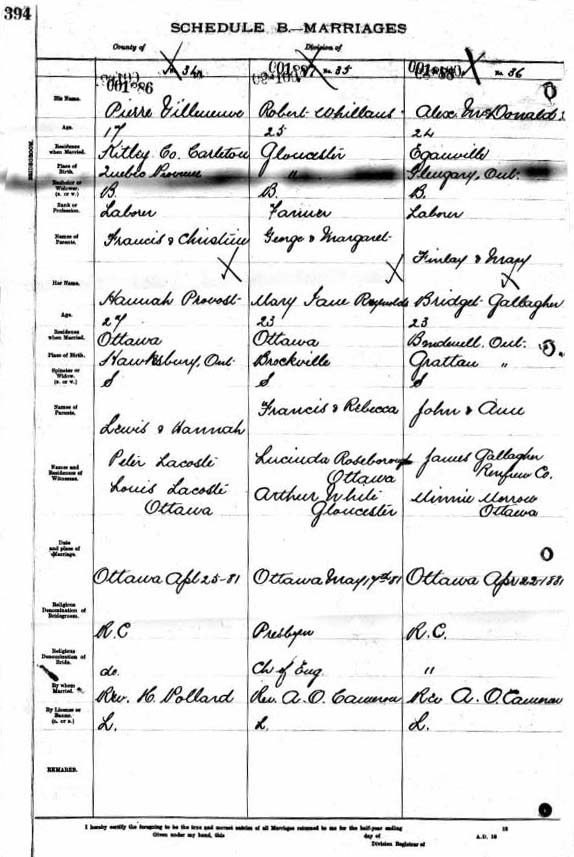 394
SCHEDULE B.—MARRIAGES
County of
Division of
No 34
No. 35
No. 36
001886
His Name.
Pierre Villeneuve
Robert Whillans
Alex. McDonald
Age.
17
25
24
Residence when Married.
Kitley Co. Carleton
Gloucester
Eganville
Place of Birth.
Quebec Province
"
Glengary, Ont.
Bachelor or Widower. (B. or W.)
B.
B.
B.
Rank or Profession.
Laborer
Farmer
Laborer
Names of Parents.
Francis & Christine
George & Margaret
Finlay & Mary
BRIDEGROOM.
Her Name.
Hannah Provost
Mary Jane Reynolds
Bridget Gallagher
Age.
27
23
23
Residence when Married.
Ottawa
Ottawa
Ont.
Place of Birth.
Hawksbury, Ont.
Brockville
Grattan "
Spinster or Widow. (S. or W.)
S
S
S
Names of Parents.
Lewis & Hannah
Francis & Rebecca
John & Anne
Names and Residences of Witnesses.
Peter Lacoste
Louis Lacoste
Ottawa
Lucinda Roseborough
Ottawa
Arthur White
Gloucester
James Gallagher
Renfrew Co.
Minnie Morrow
Ottawa
Date and place of Marriage.
Ottawa Apl 25-81
Ottawa May 17th 81
Ottawa Apr 22-1881
Religious Denomination of Bridegroom.
R.C
Presbyn
R.C.
Religious Denomination of Bride.
do.
Ch of Eng.
"
By whom Married.
Rev. H. Pollard
Rev. A. O. Cameron
Rev A. O. Cameron
By License or Banns. (L. or B.)
L.
L.
L.
REMARKS.
I hereby certify the foregoing to be the true and correct entries of all Marriages returned to me for the half-year ending 18
Given under my hand, this day of A.D. 18
Division Registrar of